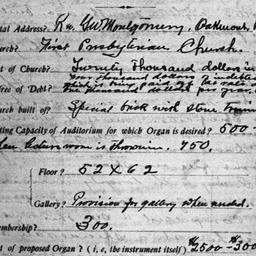 tal Address? Rev. GW Montgomery, Oakmont,
hurch? First Presbyterian Church.
t of Church? Twenty thousand dollars
four thousand dollars
free of Debt? thousand
urch built of? Special brick with stone trim
ting Capacity of Auditorium for which Organ is desired? 500-
when is thrown in. 750.
Floor? 52 x 62
Gallery? Provision for gallery when needed.
embership? 300.
t of proposed Organ? (i, e, the instrument itself) $2500-$300